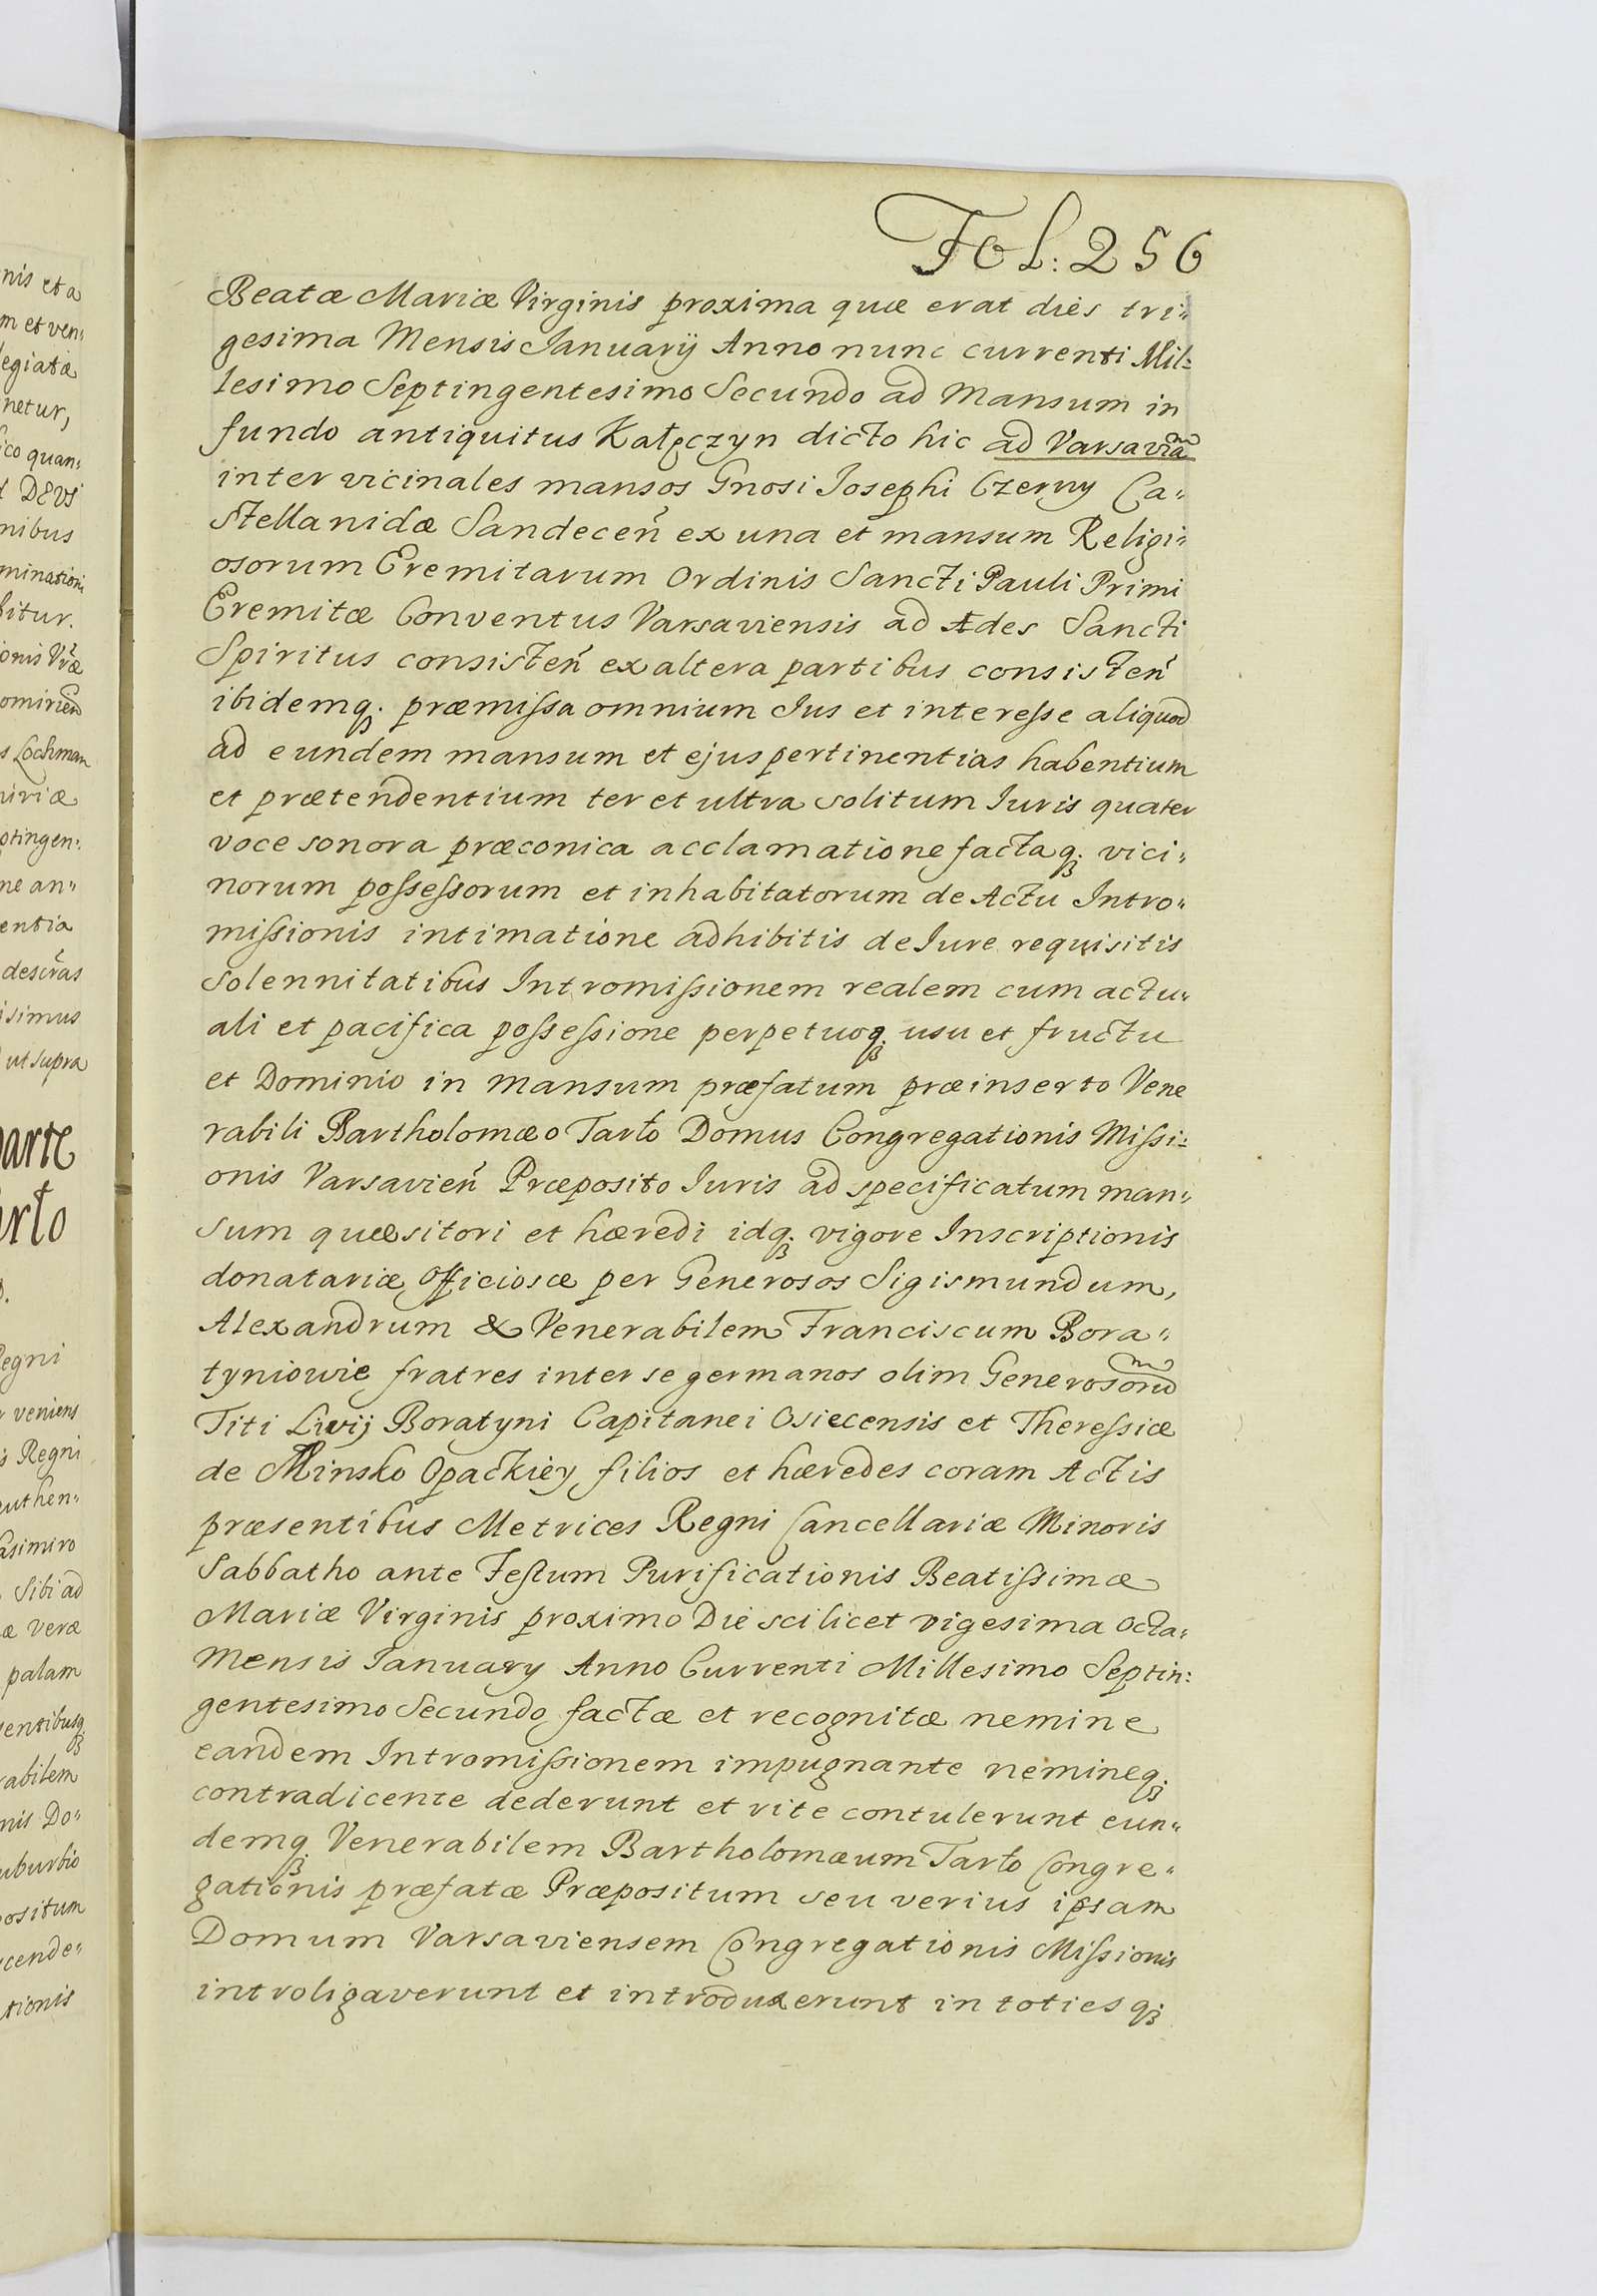 Fol: 256
Beatæ Mariæ Virginis proxima quæ erat dies tri„
gesima Mensis Januarÿ Anno nunc currenti Mil„
lesimo Septingentesimo Secundo ad Mansum in
fundo antiquitus Kałęczyn dicto hic ad Varsaviam
inter vicinales mansos Gnosi Josephi Czerny Ca„
stellanidæ Sandeceñ ex una et mansum Religi„
osorum Eremitarum Ordinis Sancti Pauli Primi
Eremitæ Conventus Varsaviensis ad Ædes Sancti
Spiritus consisteñ ex altera partibus consisteñ
ibidemq. præmissa omnium Jus et interesse aliquod
ad eundem mansum et ejus pertinentias habentium
et prætendentium ter et ultra solitum Juris quater
voce sonora præconica acclamatione factaq. vici„
norum possessorum et inhabitatorum de Actu Intro„
missionis intimatione adhibitis de Jure requisitis
solennitatibus Intromissionem realem cum actu„
ali et pacifica possessione perpetuoq. usu et fructu
et Dominio in mansum præfatum præinserto Vene
rabili Bartholomæo Tarło Domus Congregationis Missi„
onis Varsavieñ Præposito Juris ad specificatum man„
sum quæsitori et hæredi idq. vigore Inscriptionis
donatariæ officiosæ per Generosos Sigismundum,
Alexandrum & Venerabilem Franciscum Bora„
tyniowie fratres inter se germanos olim Generosorum
Titi Livij Boratyni Capitanei Osiecensis et Theressiæ
de Minsko Opackiey filios et hæredes coram Actis
præsentibus Metrices Regni Cancellariæ Minoris
Sabbatho ante Festum Purificationis Beatissimæ
Mariæ Virginis proximo Die scilicet vigesima octa„
Mensis January Anno Currenti Millesimo Septin:
gentesimo Secundo factæ et recognitæ nemine
eandem Intromissionem impugnante nemineq.
contradicente dederunt et rite contulerunt eun„
demq. Venerabilem Bartholomæum Tarło Congre„
gationis præfatæ Præpositum seu verius ipsam
Domum Varsaviensem Congregationis Missionis
introligaverunt et introduxerunt in toties q.